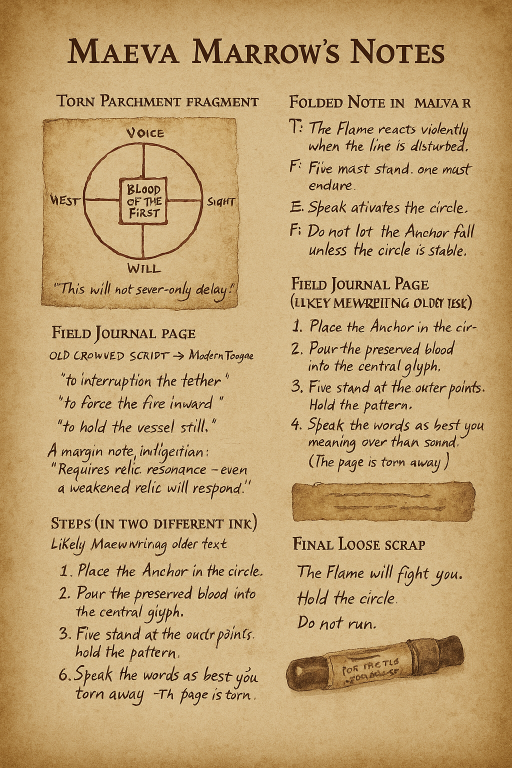 MAEVA MARROW'S NOTES
TORN PARCHMENT FRAGMENT
VOICE
WEST
BLOOD
OF THE
FIRST
SIGHT
WILL
"This will not sever-only delay."
FIELD JOURNAL PAGE
OLD CROWVED SCRIPT → Modern Toogae
"to interruption the tether"
"to force the fire inward"
"to hold the vessel still."
A margin note,
"Requires relic resonance – even
a weakened relic will respond."
STEPS (IN TWO DIFFERENT INK)
Likely older text
1. Place the Anchor in the circle.
2. Pour the preserved blood into
the central giyph.
3. Five stand at the points.
hold the pattern.
6. Speak the words as best you
torn away -Th page is torn.
FOLDED NOTE IN MALVA R
T: The Flame reacts violently
when the line is dlsturbed.
F: Five mast stand. one must
endure.
E. Speak ativates the circle.
F; Do not lot the Anchor fall
unless the circle is stable.
FIELD JOURNAL PAGE
1. Place the Anchor in the cir-
2. Pour the preserved blood
into the central glyph.
3. Five stand at the outer points.
Hold the pattern.
4. Speak the words as best you
meaning over than sonnd.
(The page is torn away)
FINAL LOOSE SCRAP
The Flame will fight you.
Hold the circle.
Do not run.